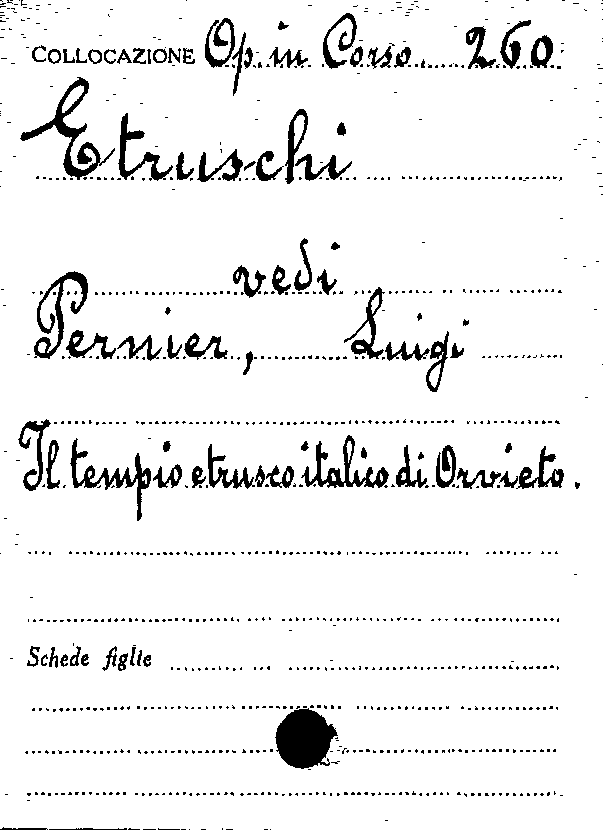 COLLOCAZIONE Op. in Corso. 260
Etruschi
vedi
Pernier, Luigi
Il tempio etrusco italico di Orvieto.
Schede figlie